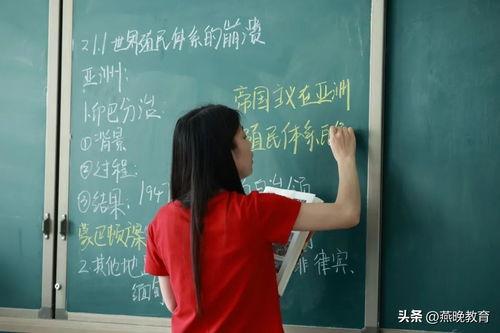 21.1 世界殖民体系的崩溃
亚洲:
1.印巴分治
①背景
②过程:
③结果: 1947
蒙巴顿方案
2.其他地
菲律宾、
缅
帝国主义在亚洲
殖民体系
头条 @燕晚教育